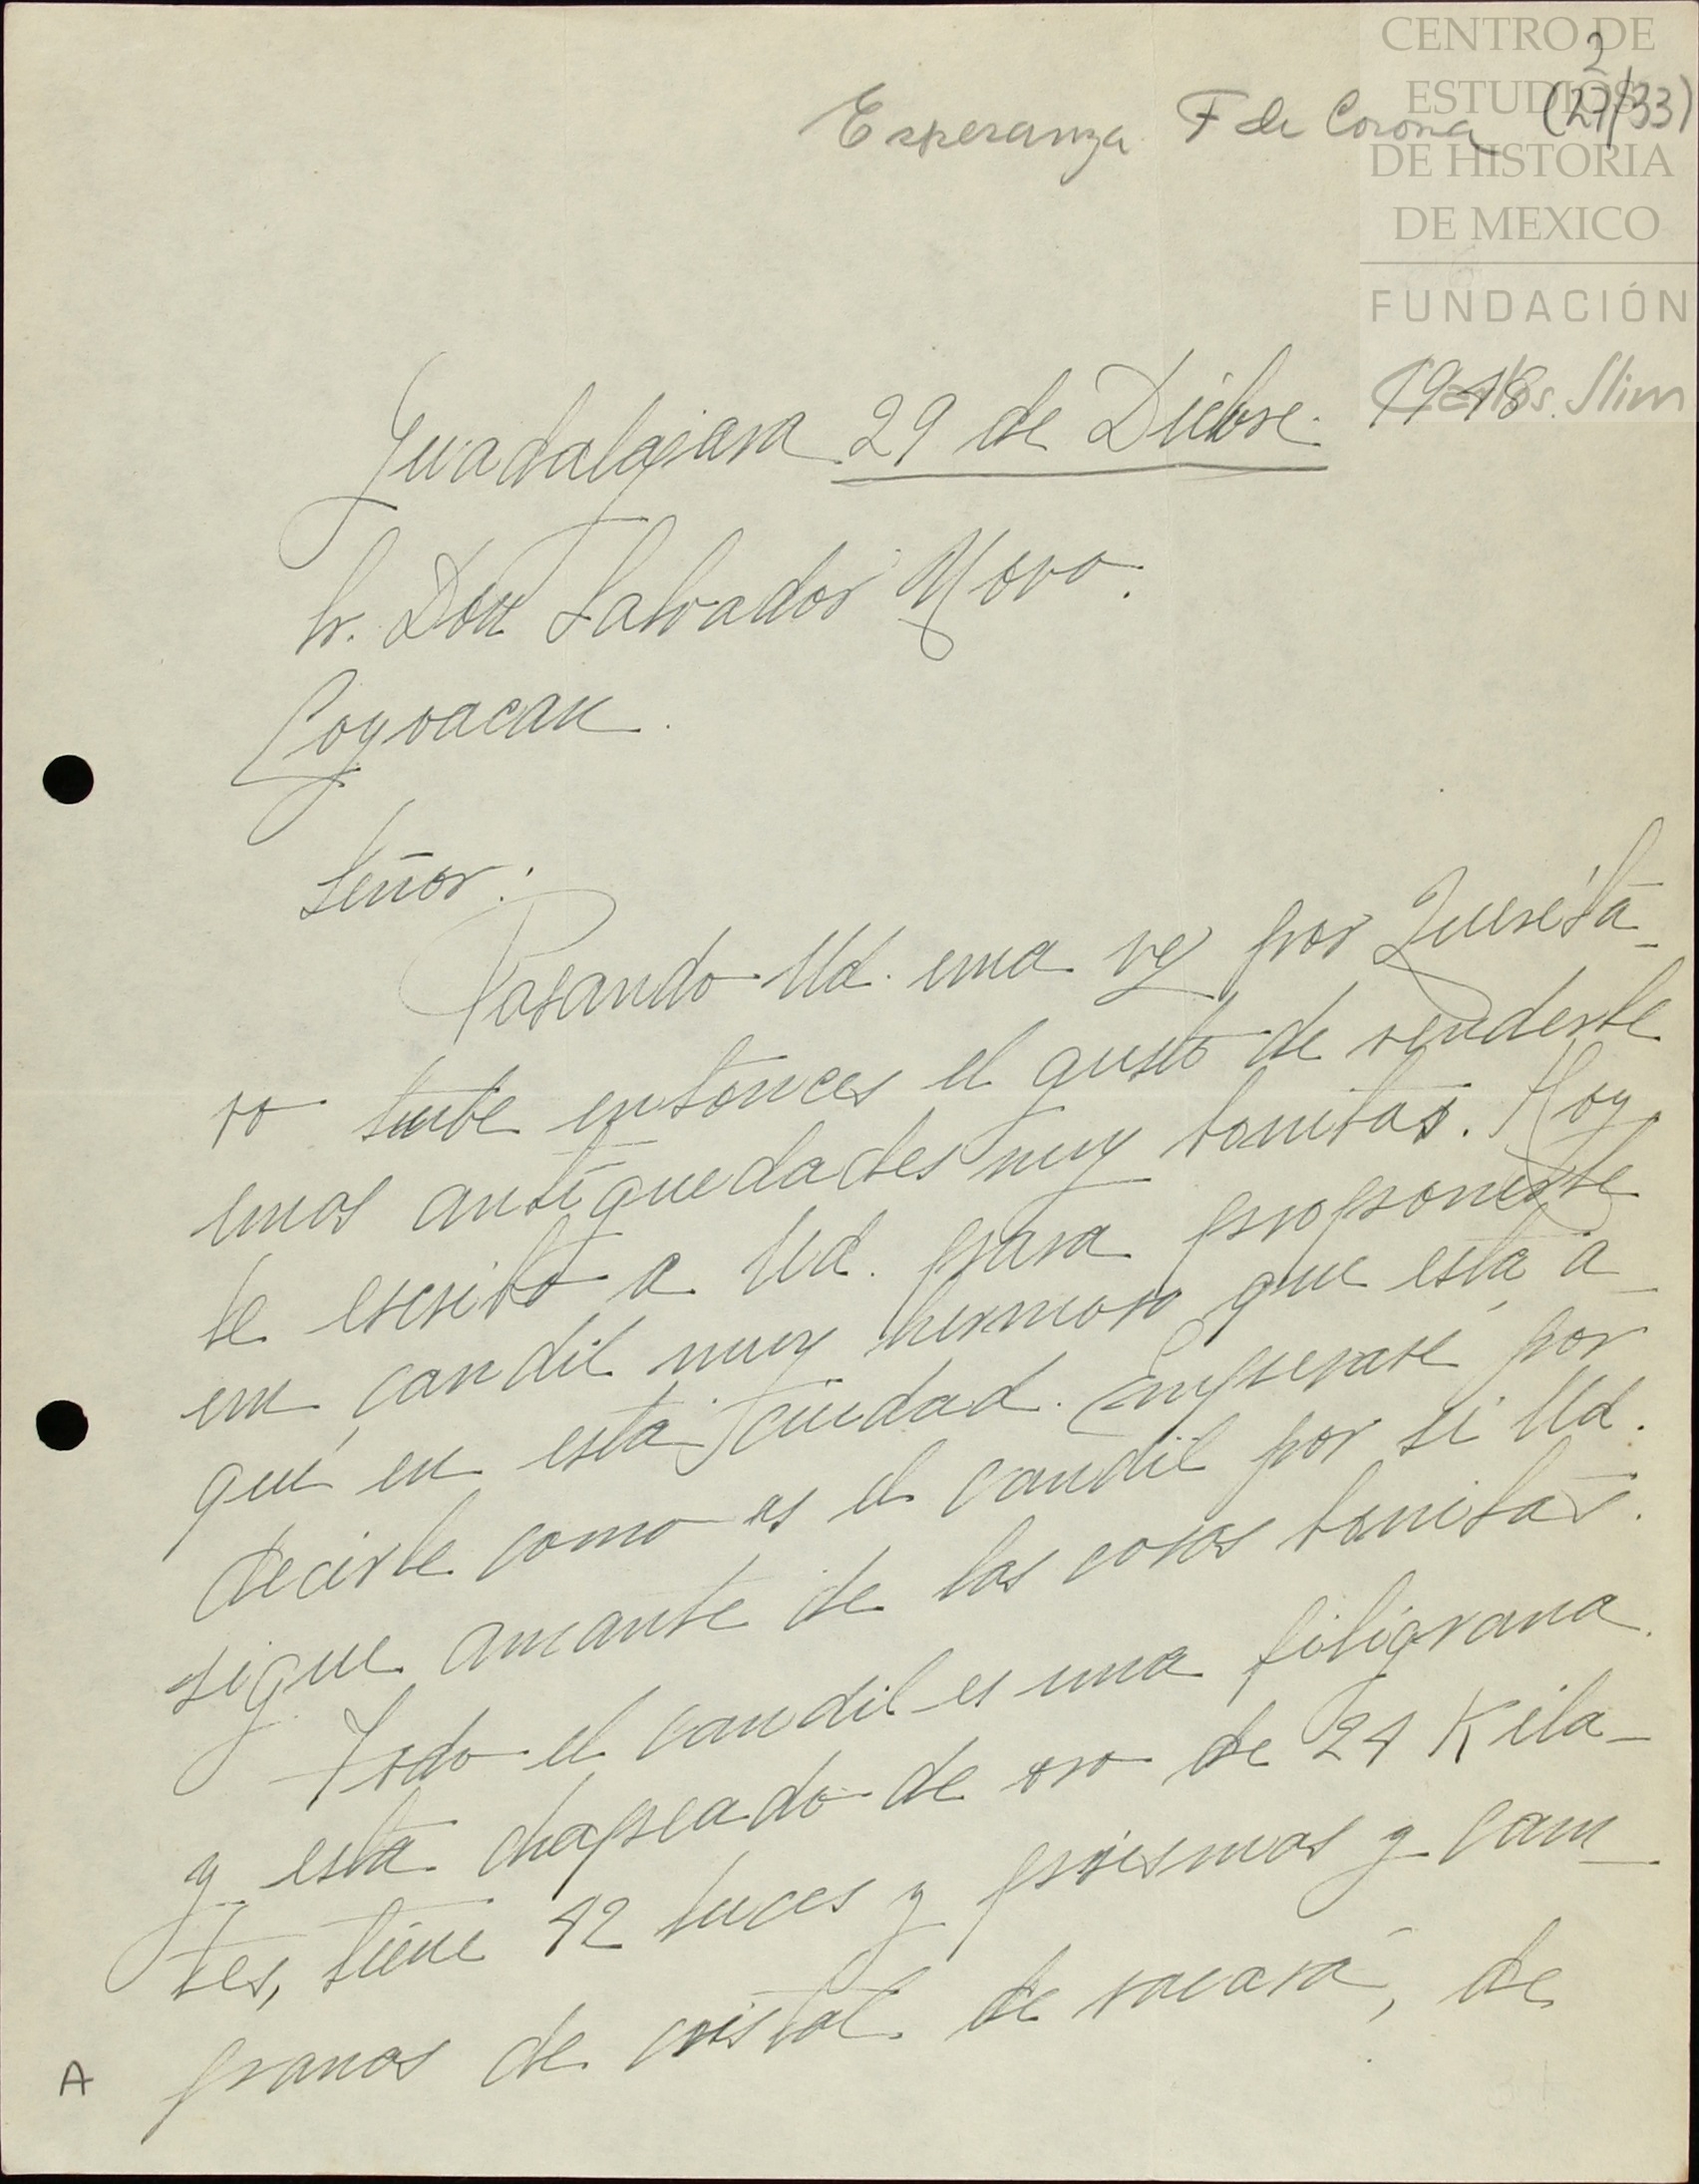 CENTRO DE
ESTUDIOS
DE HISTORIA
DE MEXICO
FUNDACIÓN
Carlos Slim
2
Esperanza F de Corona (27/33)
Guadalajara 29 de Dicbre. 1948.
Sr. Don Salvador Novo.
Coyoacan.
Señor:
Pasando Ud. una vez por Queréta-
ro tube entonces el gusto de venderle
unas antiguedades muy bonitas. Hoy
le escribo a Ud. para proponerle
un candil muy hermoso que está a-
quí en esta ciudad. Empezaré por
decirle como es el candil por si Ud.
sigue amante de las cosas bonitas.
Todo el candil es una filigrana
y está chapeado de oro de 24 Kila-
tes, tiene 42 luces y prismas y cam-
panas de cristal de vacará, de
A